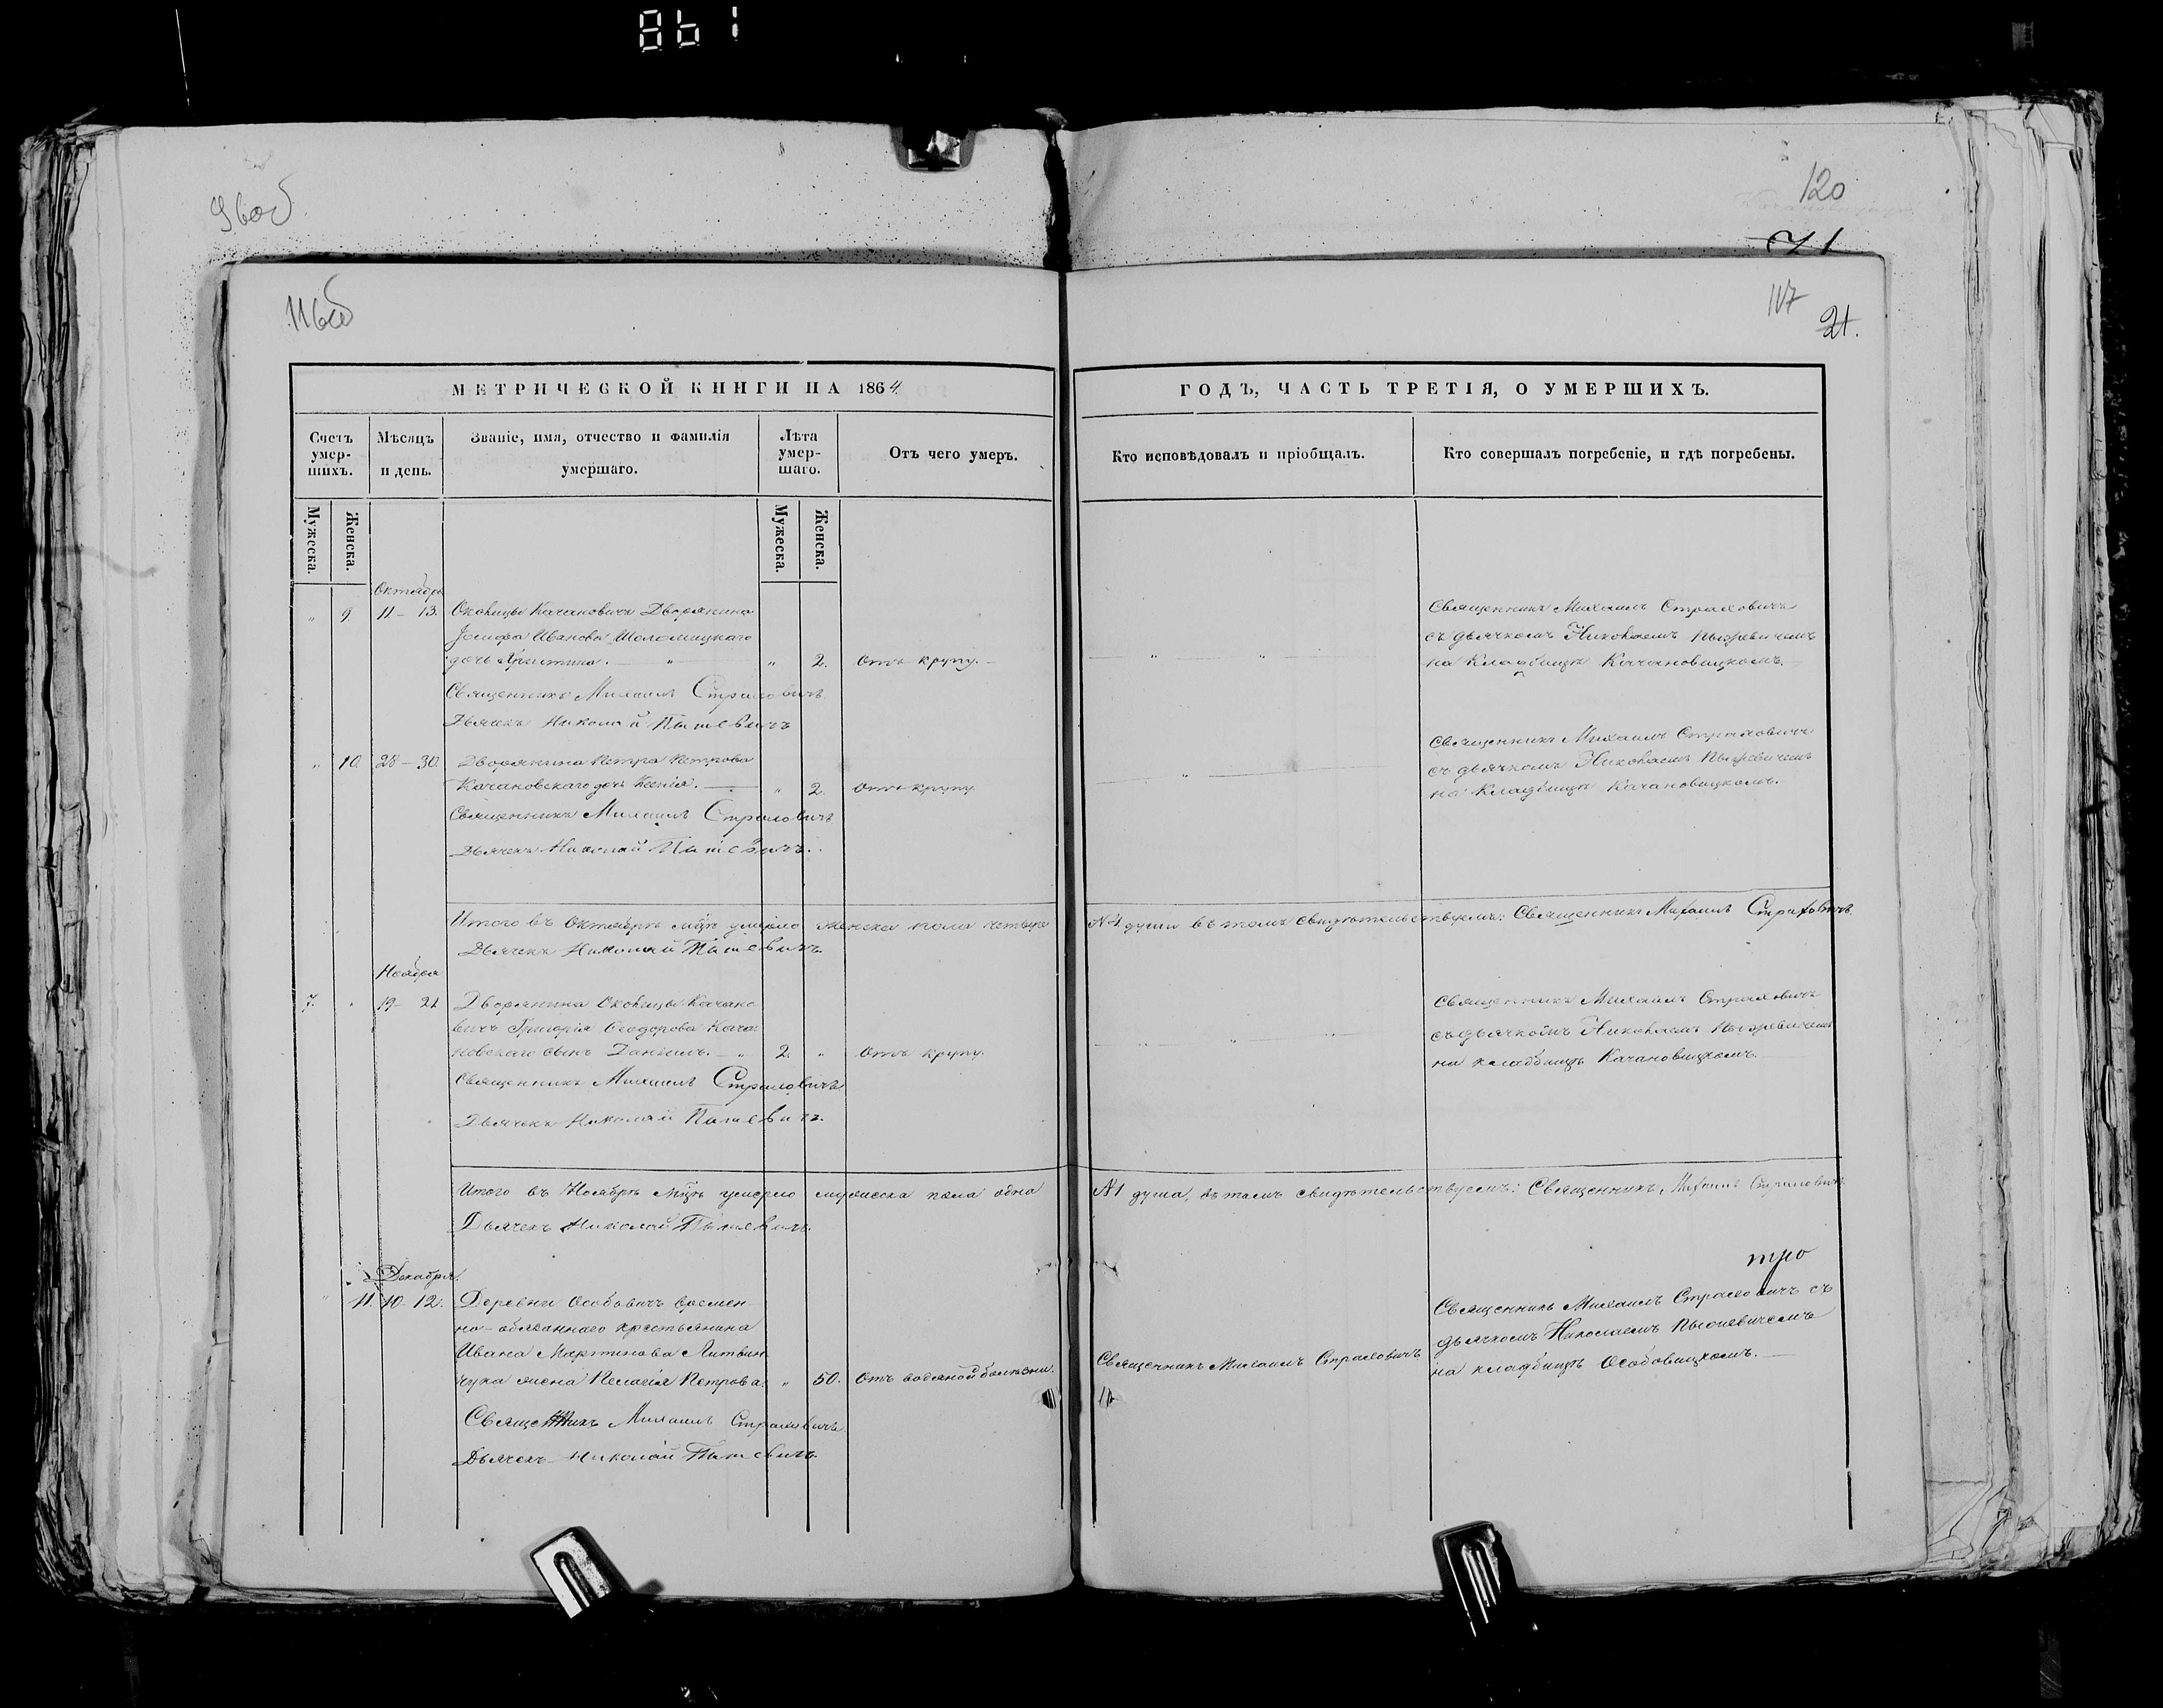 861
96об
120
71
116об
117
21.
МЕТРИЧЕСКОЙ КНИГИ НА 1864
ГОДЪ, ЧАСТЬ ТРЕТІЯ, О УМЕРШИХЪ.
Счетъ умер-шихъ.
Мѣсяцъ и день.
Званіе, имя, отчество и фамилія умершаго.
Лѣта умер-шаго.
Отъ чего умеръ.
Кто исповѣдовалъ и пріобщалъ.
Кто совершалъ погребеніе, и гдѣ погребены.
Мужеска.
Женска.
Мужеска.
Женска.
Октябрь
„ 9 11 – 13. Околицы Качановичи Дворянина
Іосифа Иванова Шоломицкаго
дочь Христина. — „ „ 2. Отъ крупу. —
Священникъ Михаилъ Страховичъ
съ дьячкомъ Николаемъ
на кладбищѣ Качановицкомъ.
Священникъ Михаилъ Страховичъ
Дьячекъ Николай
„ 10. 28 – 30. Дворянина Петра Петрова
Качановскаго дочь Ксенія. — „ 2. Отъ крупу
Священникъ Михаилъ Страховичъ
съ дьячкомъ Николаемъ
на кладбищѣ Качановицкомъ.
Священникъ Михаилъ Страховичъ
Дьячекъ Николай
Итого въ Октябрѣ мцѣ умерло женска пола четыре №4 души въ томъ свидѣтельствуемъ: Священникъ Михаилъ Страховичъ
Дьячекъ Николай
Ноября
7. „ 19 – 21 Дворянина Околицы Качано
вичъ Григорія Ѳеодорова Кача
новскаго сынъ Даніилъ. — „ 2. „ Отъ крупу.
Священникъ Михаилъ Страховичъ
съ дьячкомъ Николаемъ
на кладбищѣ Качановицкомъ.
Священникъ Михаилъ Страховичъ
Дьячекъ Николай
Итого въ Ноябрѣ мцѣ умерло мужеска пола одна №1 душа, въ томъ свидѣтельствуемъ: Священникъ Михаилъ Страховичъ
Дьячекъ Николай
тро
Декабря.
„ 11. 10 – 12. Деревни Особовичъ времен-
но-обязаннаго крестьянина
Ивана Мартинова Литвин
чука жена Пелагія Петрова. „ 50. Отъ водяной болѣзни.
Священникъ Михаилъ Страховичъ
Священникъ Михаилъ Страховичъ съ
дьячкомъ Николаемъ
на кладбищѣ Особовицкомъ. —
Священникъ Михаилъ Страховичъ
Дьячекъ Николай